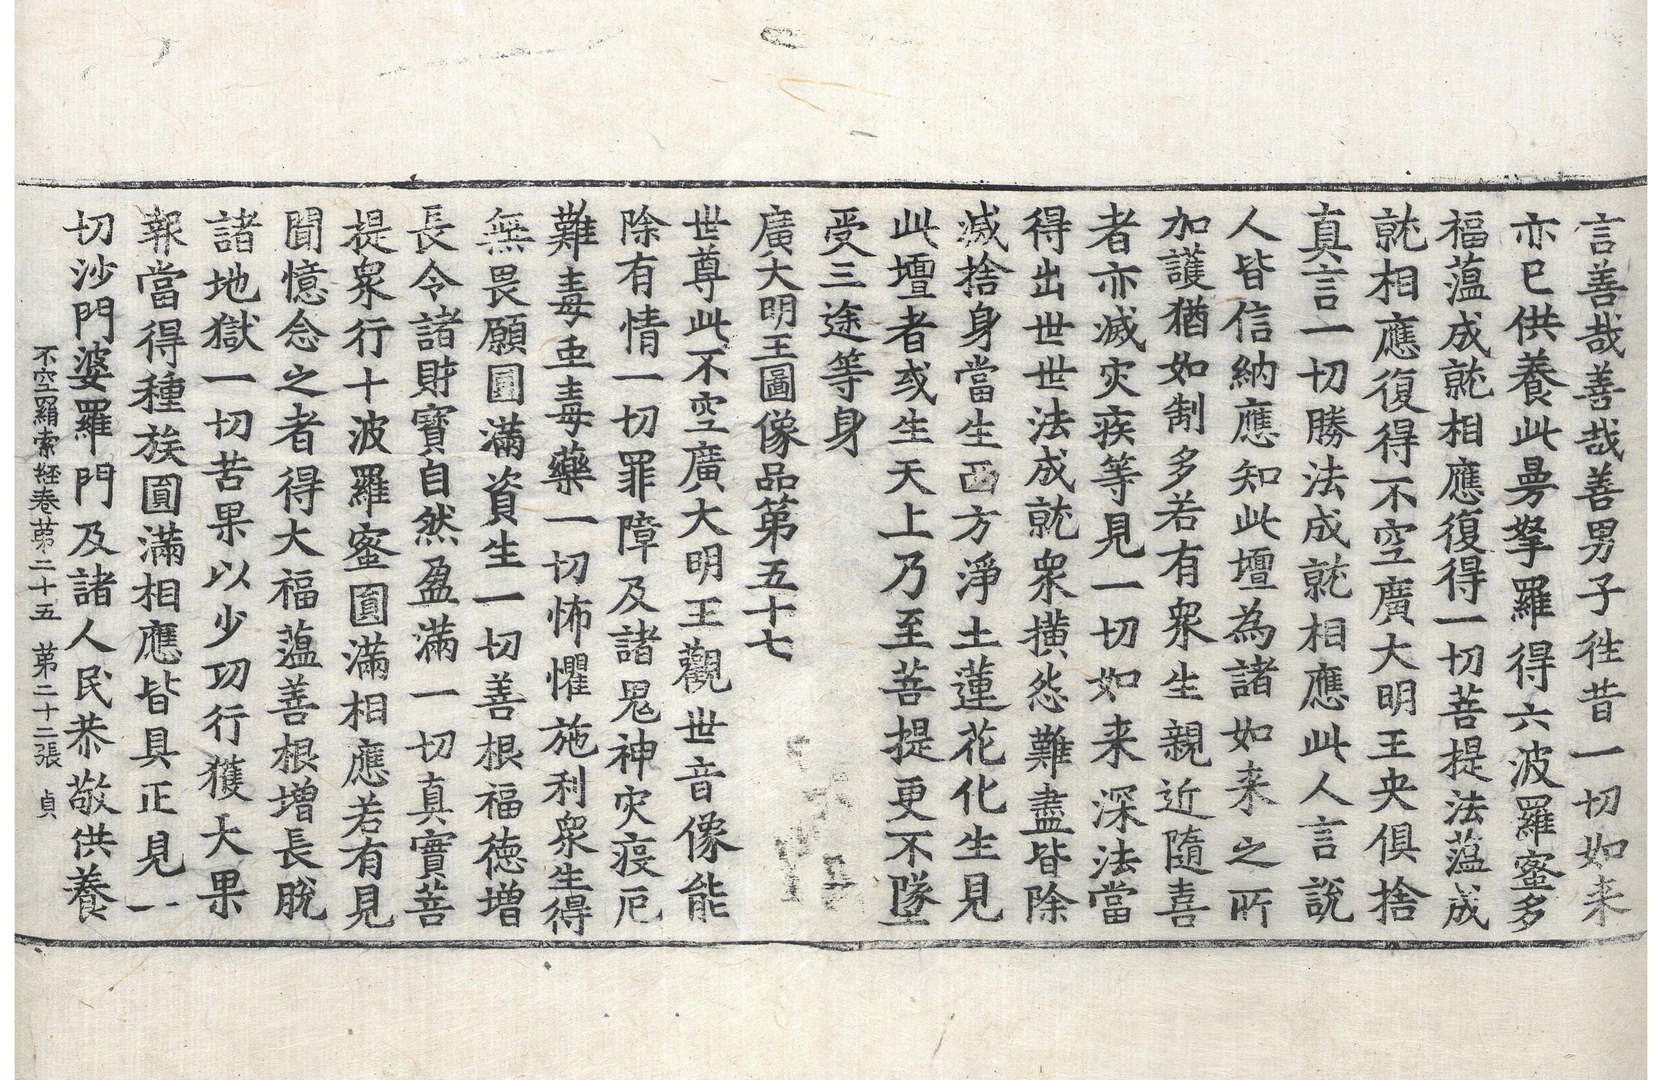 言善哉善哉善男子往昔一切如来
亦已供養此曼拏羅得六波羅蜜多
福蕰成就相應復得一切菩提法蕰成
就相應復得不空廣大明王央俱捨
真言一切勝法成就相應此人言說
人皆信納應知此壇為諸如来之所
加護猶如制多若有衆生親近隨喜
者亦滅灾疾等見一切如来深法當
得出世世法成就衆撗怨難盡皆除
滅捨身當生西方淨土蓮花化生見
此壇者或生天上乃至菩提更不墜
受三途等身
廣大明王圖像品第五十七
世尊此不空廣大明王觀世音像能
除有情一切罪障及諸鬼神灾疫厄
難毒䖝毒藥一切怖懼施利衆生得
無畏願圓滿資生一切善根福德增
長令諸財寶自然盈滿一切真實菩
提衆行十波羅蜜圓滿相應若有見
聞憶念之者得大福蕰善根增長脫
諸地獄一切苦果以少功行獲大果
報當得種族圓滿相應皆具正見一
切沙門婆羅門及諸人民恭敬供養
不空羂索經卷苐二十五 苐二十二張 貞